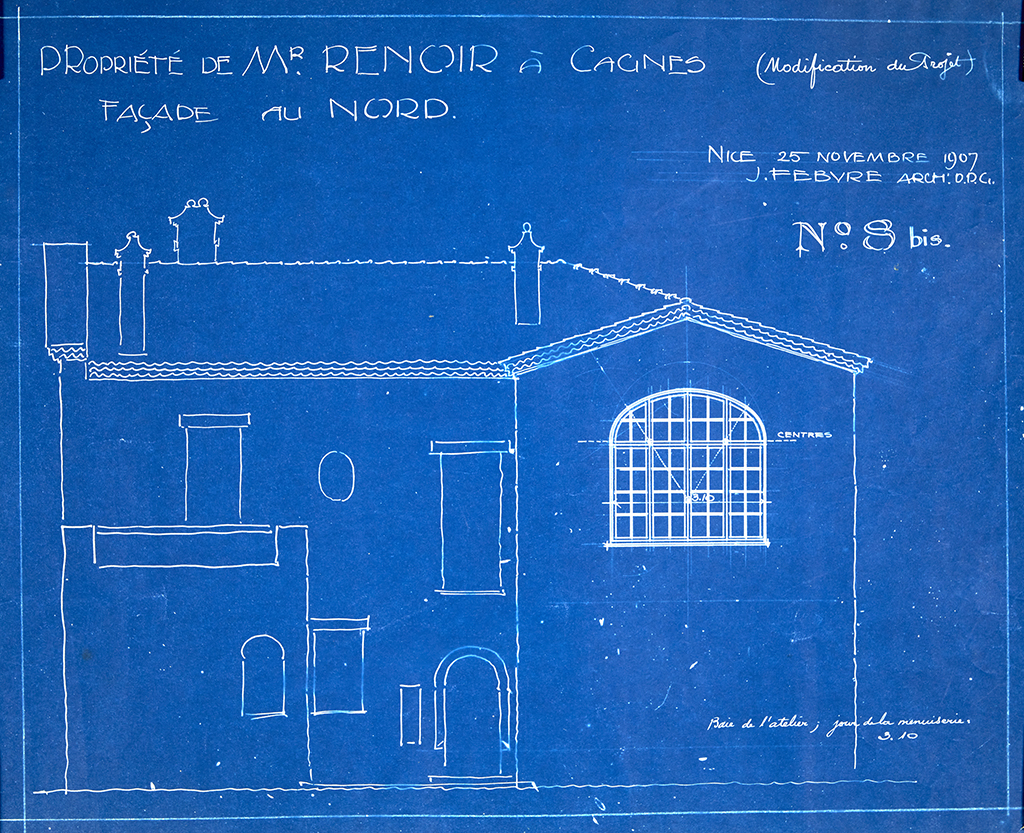 PROPRIÉTÉ DE MR. RENOIR à CAGNES (Modification du Projet)
FAÇADE AU NORD.
NICE 25 NOVEMBRE 1907
J. FEBVRE ARCH: D.P.G.
No. 8 bis.
CENTRES
3.10
Baie de l'atelier; jour de la menuiserie:
3.10